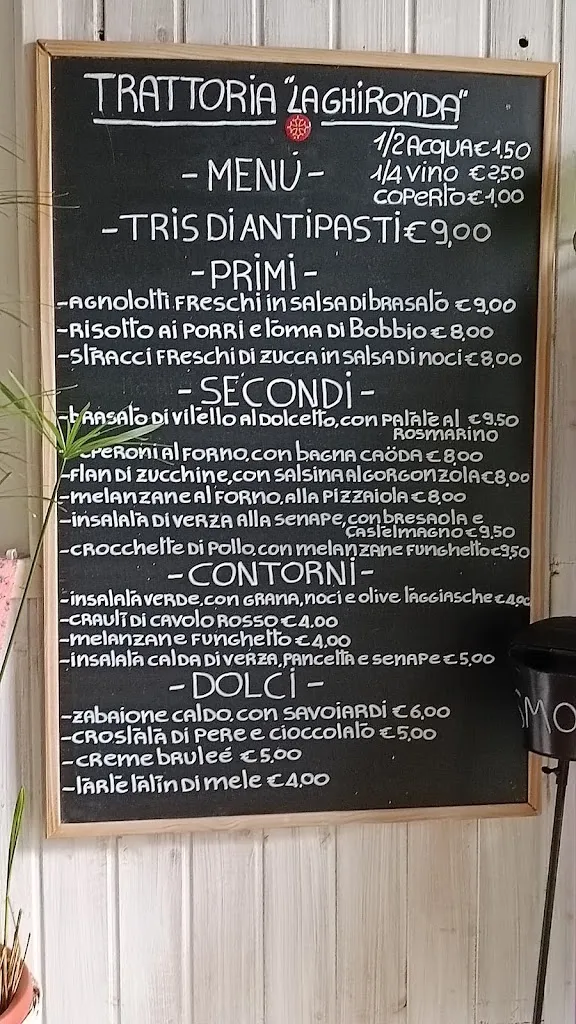 TRATTORIA "LA GHIRONDA"
1/2 ACQUA € 1,50
1/4 VINO € 2,50
COPERTO € 1,00
- MENÚ -
- TRIS DI ANTIPASTI € 9,00
- PRIMI -
- AGNOLOTTI FRESCHI IN SALSA DI BRASATO € 9,00
- RISOTTO AI PORRI E TOMA DI BOBBIO € 8,00
- STRACCI FRESCHI DI ZUCCA IN SALSA DI NOCI € 8,00
- SECONDI -
- BRASATO DI VITELLO AL DOLCETTO, CON PATATE AL € 9.50
ROSMARINO
PERONI AL FORNO, CON BAGNA CAÖDA € 8,00
- FLAN DI ZUCCHINE, CON SALSINA AL GORGONZOLA € 8,00
- MELANZANE AL FORNO, ALLA PIZZAIOLA € 8,00
- INSALATA DI VERZA ALLA SENAPE, CON BRESAOLA E
CASTELMAGNO € 9,50
- CROCCHETTE DI POLLO, CON MELANZANE FUNGHETTO € 9,50
- CONTORNI -
- INSALATA VERDE, CON GRANA, NOCI E OLIVE TAGGIASCHE € 4,00
- CRAUTI DI CAVOLO ROSSO € 4.00
- MELANZANE FUNGHETTO € 4,00
- INSALATA CALDA DI VERZA, PANCETTA E SENAPE € 5,00
- DOLCI -
- ZABAIONE CALDO, CON SAVOIARDI € 6,00
- CROSTATA DI PERE E CIOCCOLATO € 5,00
- CREME BRULEÉ € 5,00
- TARTE TATIN DI MELE € 4,00
SMO